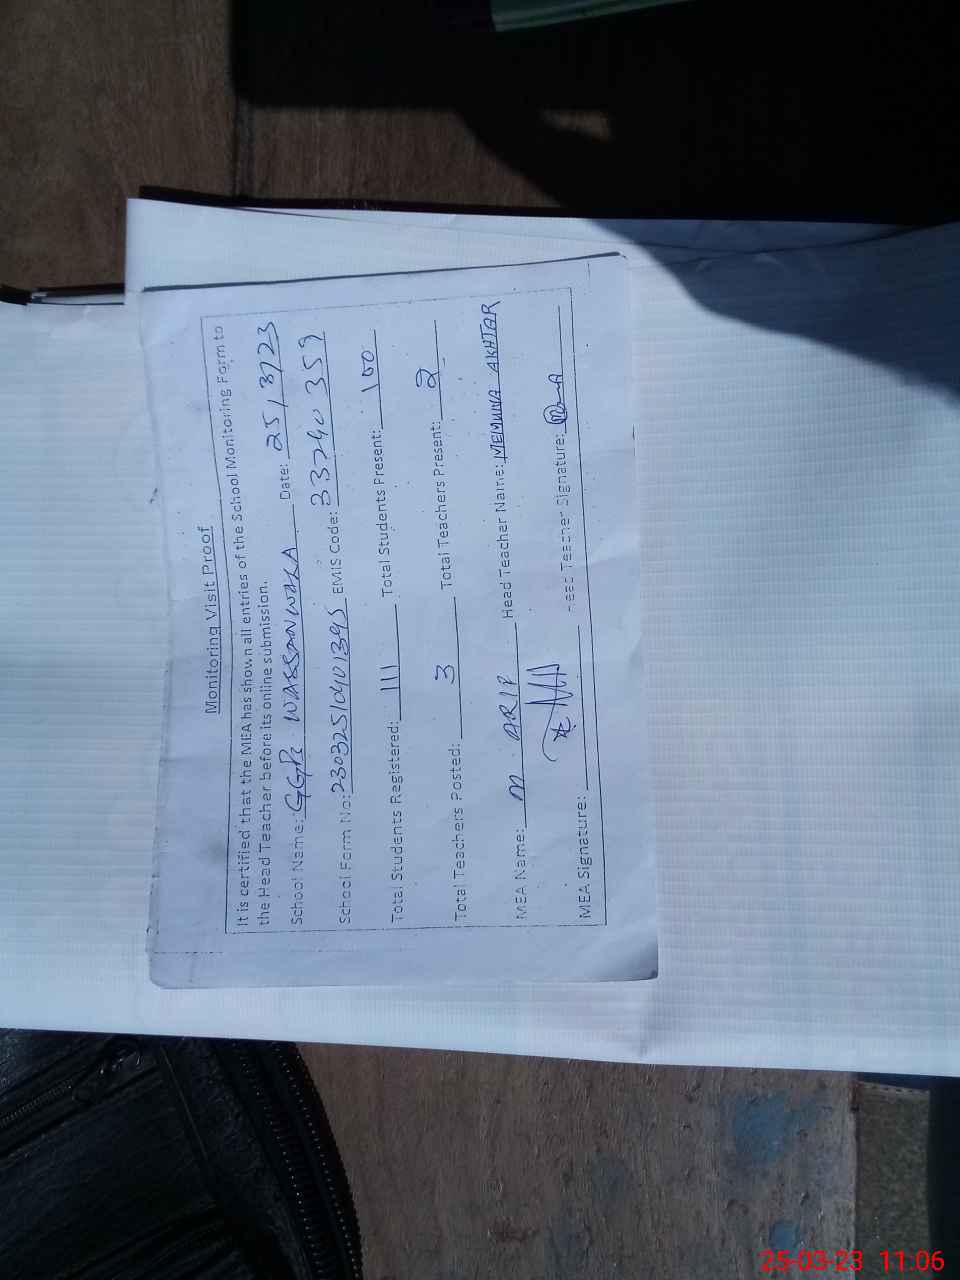 Monitoring Visit Proof
It is certified that the MEA has shown all entries of the School Monitoring Form to
the Head Teacher before its online submission.
School Name: GGPS WASSANWALA Date: 25/3/23
School Form No: 23032510401395 EMIS Code: 33740359
Total Students Registered: 111 Total Students Present: 100
Total Teachers Posted: 3 Total Teachers Present: 2
MEA Name: M. ARIF Head Teacher Name: MEMUNA AKHTAR
MEA Signature: Head Teacher Signature:
25-03-23 11:06